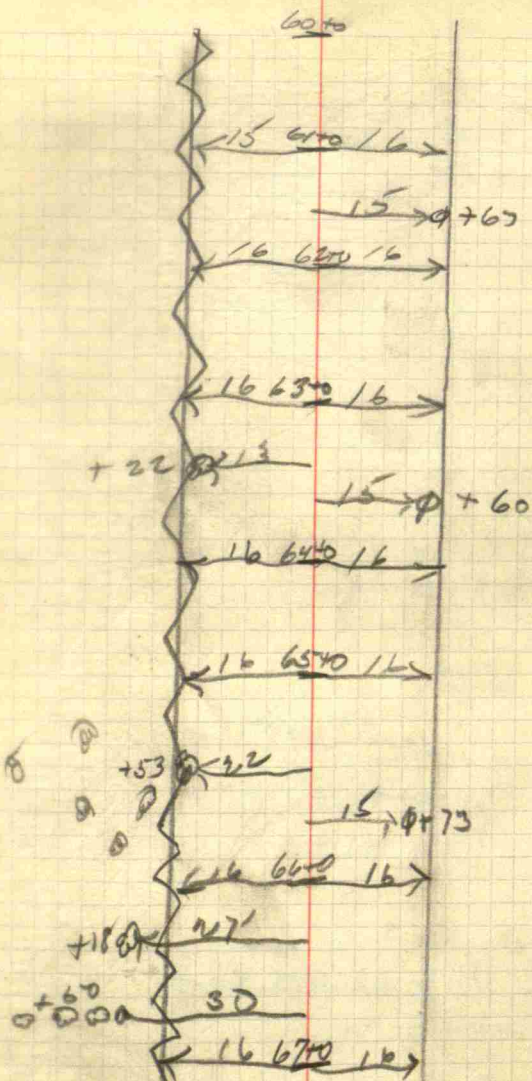 60+0
15 61+0 16
15 ϕ +63
16 62+0 16
16 63+0 16
+22 13
15 ϕ +60
16 64+0 16
16 65+0 16
+53 22
15 ϕ+73
16 66+0 16
+18 27'
+60 30
16 67+0 16